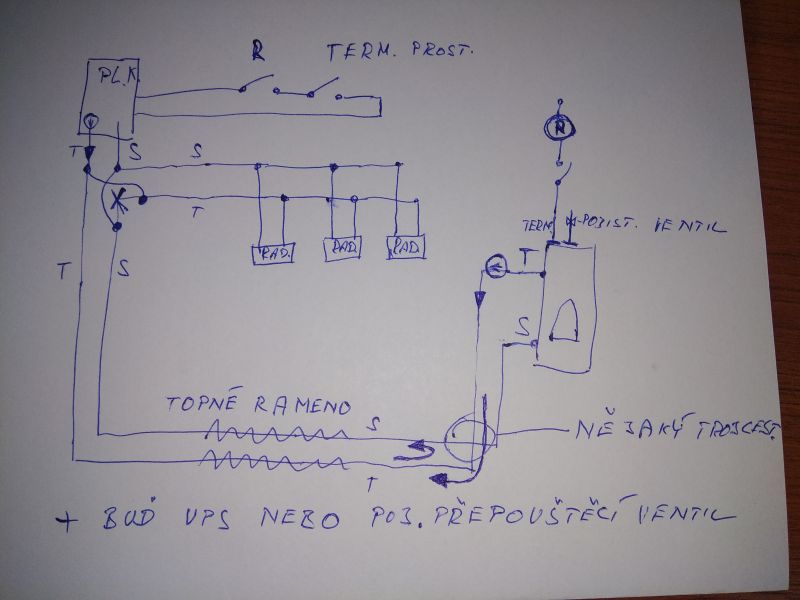 R TERM. PROST.
PL.K.
T S S
T
R
TERM. POJIST. VENTIL
RAD. RAD. RAD.
T S
T
S
TOPNÉ RAMENO
S
NĚJAKÝ TROJCEST.
T
+ BUĎ UPS NEBO POJ. PŘEPOUŠTĚCÍ VENTIL